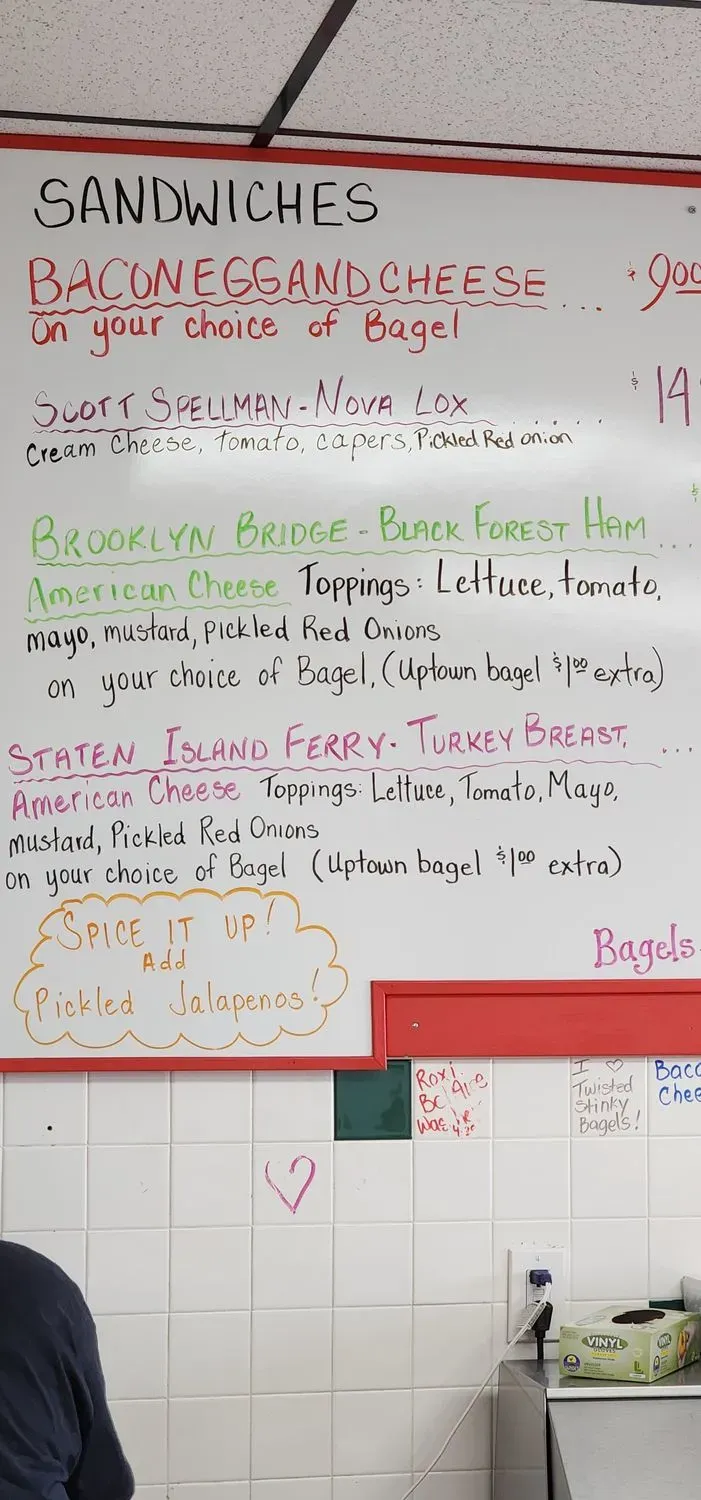 SANDWICHES
BACON EGG AND CHEESE ... $900
On your choice of Bagel
SCOTT SPELLMAN - NOVA LOX ...... $14
Cream Cheese, tomato, capers, Pickled Red onion
BROOKLYN BRIDGE - BLACK FOREST HAM ... $
American Cheese Toppings: Lettuce, tomato,
mayo, mustard, pickled Red Onions
on your choice of Bagel, (Uptown bagel $100 extra)
STATEN ISLAND FERRY - TURKEY BREAST, ...
American Cheese Toppings: Lettuce, Tomato, Mayo,
mustard, Pickled Red Onions
on your choice of Bagel (Uptown bagel $100 extra)
SPICE IT UP!
Add
Pickled Jalapenos!
Bagels
Roxi
BC
Was
I ♡
Twisted
Stinky
Bagels!
Baco
Chee
VINYL
GLOVES
L